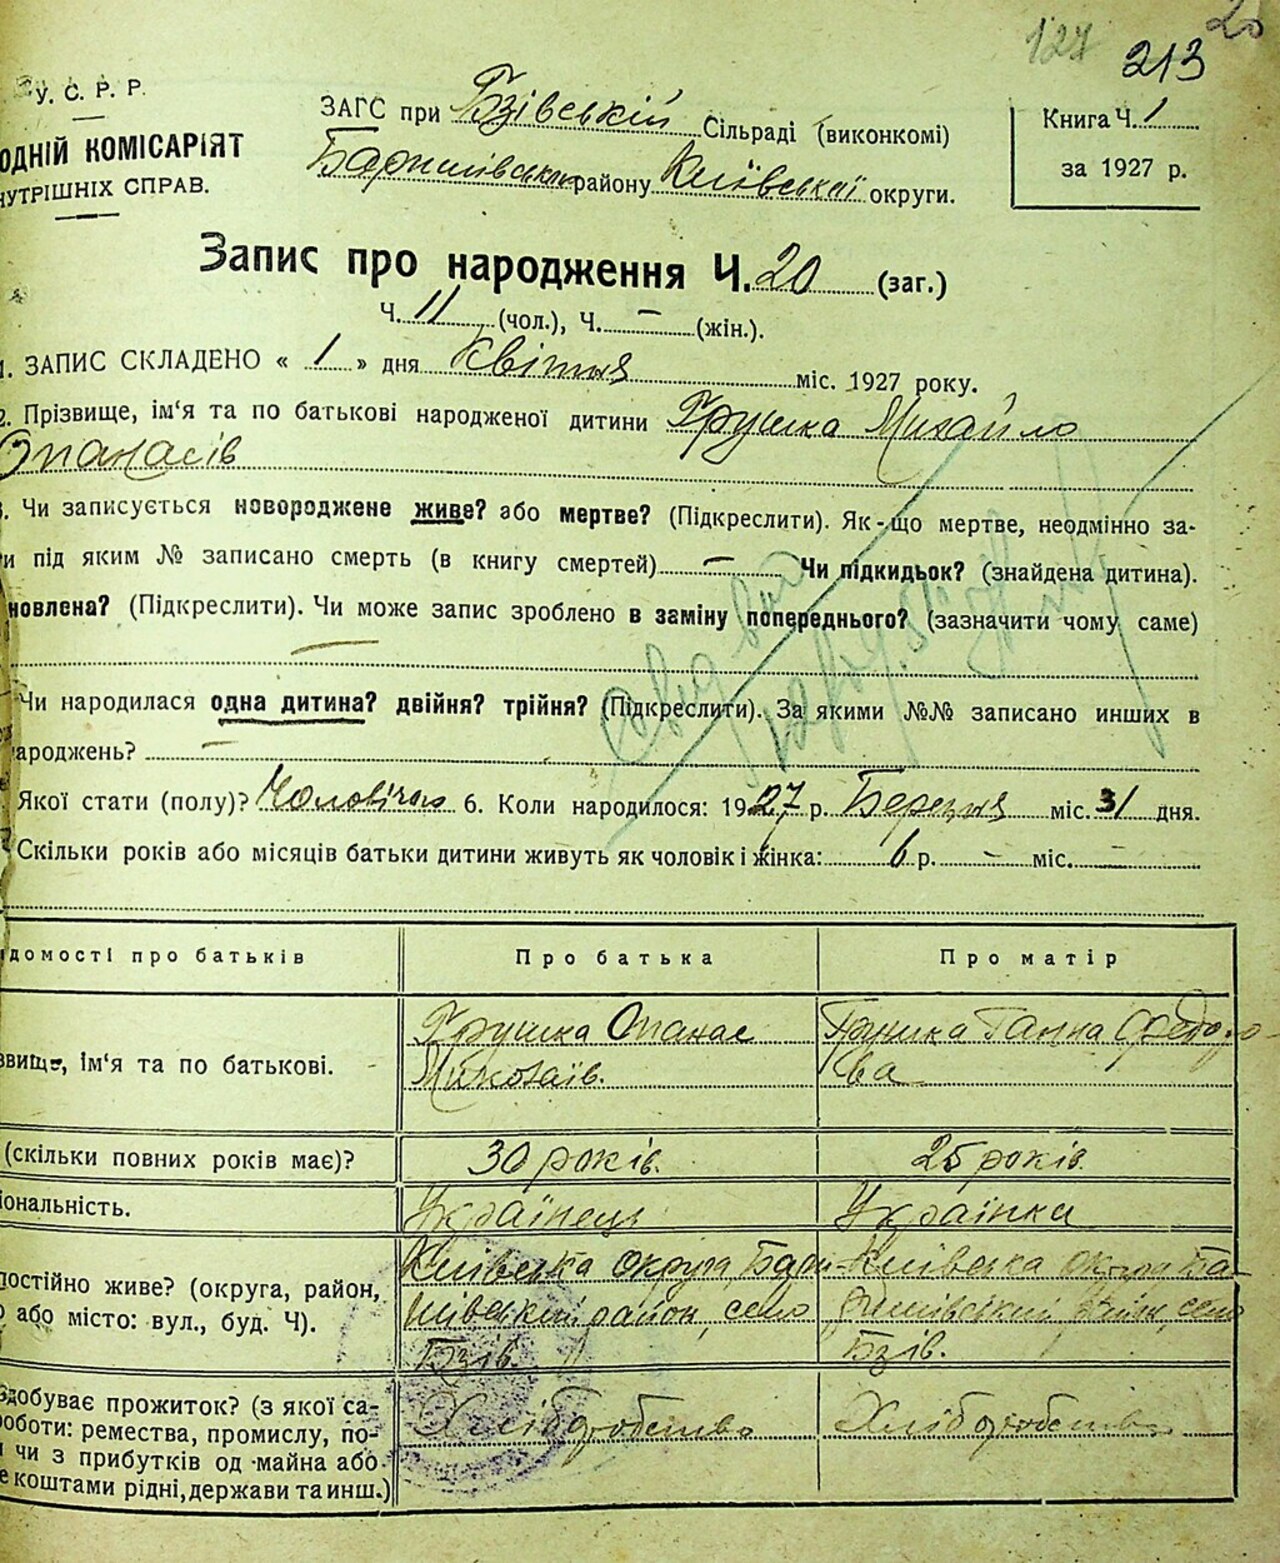 127 213 20
У. С. Р. Р.
ОДНІЙ КОМІСАРІЯТ
НУТРІШНІХ СПРАВ.
ЗАГС при Бзівській Сільраді (виконкомі)
Баришівськ району Київської округи.
Книга Ч. 1
за 1927 р.
Запис про народження Ч. 20 (заг.)
Ч. 11 (чол.), Ч. — (жін.).
1. ЗАПИС СКЛАДЕНО « 1 » дня Квітня міс. 1927 року.
2. Прізвище, ім'я та по батькові народженої дитини Грушка Михайло
Опанасів
3. Чи записується новороджене живе? або мертве? (Підкреслити). Як-що мертве, неодмінно за-
и під яким № записано смерть (в книгу смертей) — Чи підкидьок? (знайдена дитина).
новлена? (Підкреслити). Чи може запис зроблено в заміну попереднього? (зазначити чому саме)
—
Чи народилася одна дитина? двійня? трійня? (Підкреслити). За якими №№ записано инших в
ароджень? —
Якої стати (полу)? Чоловічої 6. Коли народилося: 1927 р. Березня міс. 31 дня.
Скільки років або місяців батьки дитини живуть як чоловік і жінка: 6 р. — міс. —
ідомості про батьків Про батька Про матір
звище, ім'я та по батькові. Грушка Опанас Миколаїв. Грушка Ганна Федоро-
ва
(скільки повних років має)? 30 років. 25 років.
іональність. Українець Українка
постійно живе? (округа, район, Київська округа Бари- Київська округа Ба-
о або місто: вул., буд. Ч). шівський район, село ришівський район, село
Бзів. Бзів.
здобуває прожиток? (з якої са- Хліборобство Хліборобство
роботи: ремества, промислу, по-
и чи з прибутків од майна або
е коштами рідні, держави та инш.)